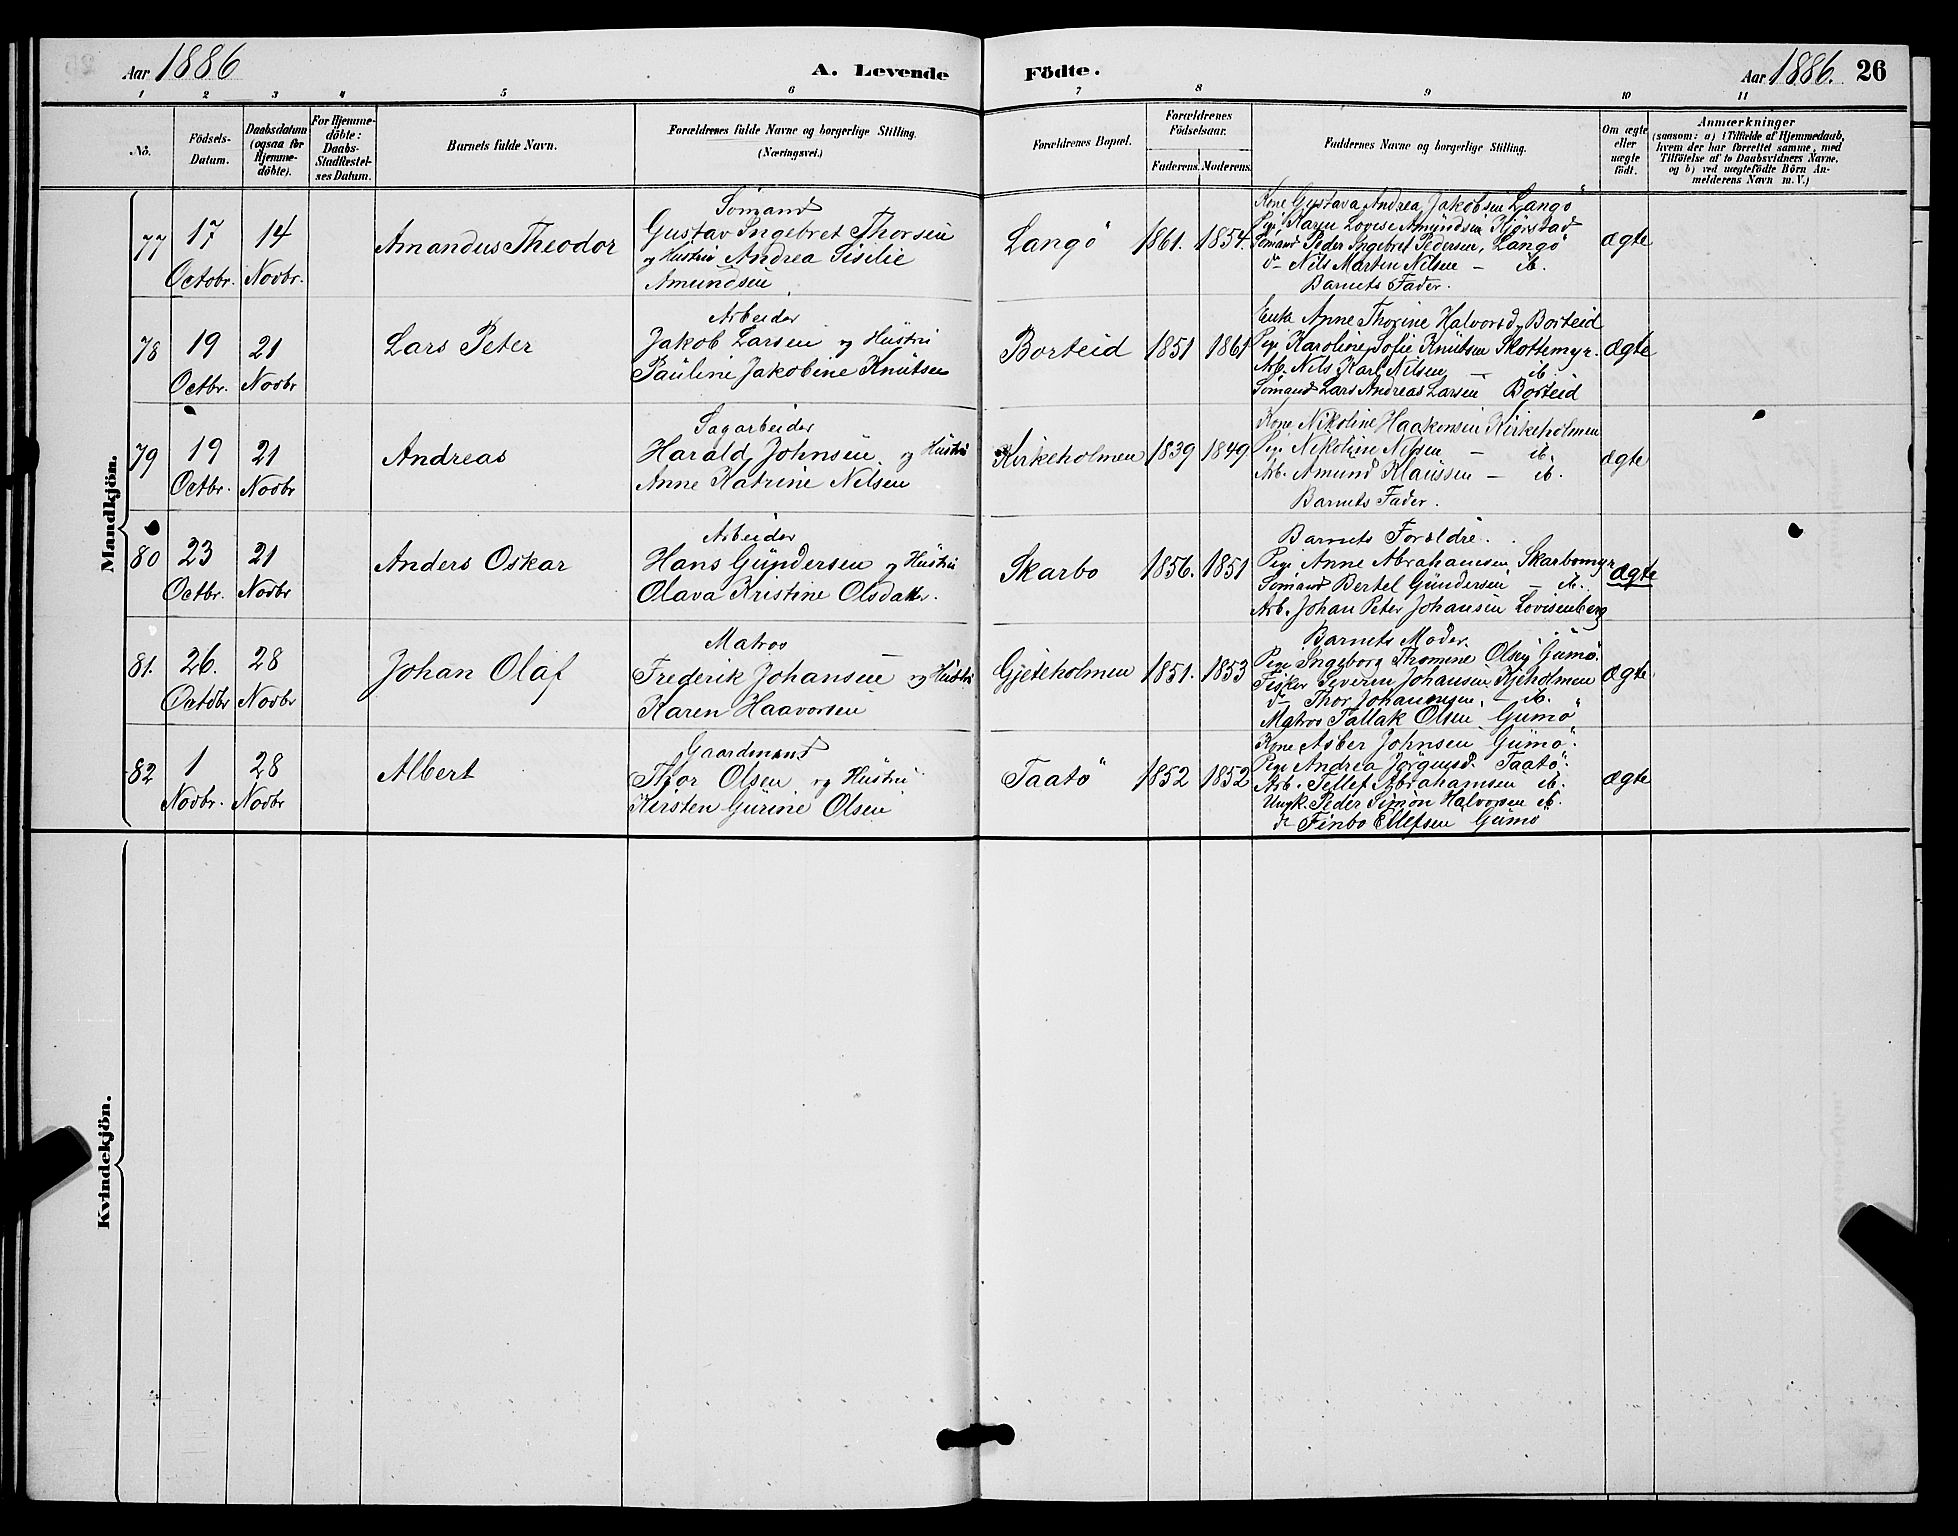 Aar 1886
A. Levende Födte.
Aar 1886. 26
1 2 3 4 5 6 7 8 9 10 11
No.
Födsels-
Datum.
Daabsdatum
(ogsaa for
Hjemme-
döbte).
For Hjemme-
döbte:
Daabs-
Stadfæstel-
ses Datum.
Barnets fulde Navn.
Forældrenes fulde Navne og borgerlige Stilling.
(Næringsvei.)
Forældrenes Bopæl.
Forældrenes
Födselsaar.
Faderens. Moderens.
Faddernes Navne og borgerlige Stilling.
Om ægte
eller
uægte
födt.
Anmærkninger
(saasom: a) i Tilfælde af Hjemmedaab,
hvem der har forrettet samme, med
Tilföielse af to Daabsvidners Navne,
og b) ved uægtefödte Börn An-
melderens Navn m. V.)
Mandkjön.
77
17
Octobr.
14
Novbr.
Amandus Theodor
Sömand
Gustav Ingebret Thorsen
og Hustru Andrea Sisilie
Amundsen
Langö
1861. 1854.
Kone Gustava Andrea Jakobsen Langö
Pige Karen Lovise Amundsen Kjörstad
Sömand Peder Ingebret Pedersen, Langö
do Nils Marten Nilsen — ib.
Barnets Fader.
ægte
78
19
Octbr.
21
Novbr
Lars Peter
Arbeider
Jakob Larsen og Hustru
Pauline Jakobine Knutsen
Borteid
1851 1861
Enke Anne Thorine Halvorsd. Borteid
Pige Karoline Sofie Knutsen Skottemyr.
Arb. Nils Karl Nilsen — ib
Sömand Lars Andreas Larsen Borteid
ægte
79
19
Octbr.
21
Novbr
Andreas
Sagarbeider
Harald Johnsen og Hustru
Anne Katrine Nilsen
Kirkeholmen
1839 1849
Kone Nikoline Haakensen Kirkeholmen
Pige Nikoline Nilsen — ib.
Arb. Amund Klausen — ib.
Barnets Fader.
ægte
80
23
Octbr.
21
Novbr
Anders Oskar
Arbeider
Hans Gundersen og Hustru
Olava Kristine Olsdatr.
Skarbo
1856. 1851
Barnets Foreldre.
Pige Anne Abrahamsen Skarbomyr
Sömand Bertel Gundersen — ib.
Arb. Johan Peter Johansen Lovisenberg
ægte
81.
26.
Octobr
28
Novbr
Johan Olaf
Matros
Frederik Johansen og Hustru
Karen Haavorsen
Gjeteholmen
1851. 1853
Barnets Moder.
Pige Ingeborg Thomine Olsen Gumö.
Fisker Severin Johansen Kjeholmen
do Thor Johannsen — ib.
Matros Tallak Olsen Gumö
ægte.
82
1
Novbr.
28
Novbr
Albert
Gaardmand
Thor Olsen og Hustru
Kirsten Gurine Olsen
Taatö
1852 1852
Kone Asber Johnsen Gumö.
Pige Andrea Jörgensd. Taatö.
Arb. Tellef Abrahamsen ib.
Ungk. Peder Simon Halvorsen ib.
do Finbo Ellefsen Gumö
ægte
Kvindekjön.